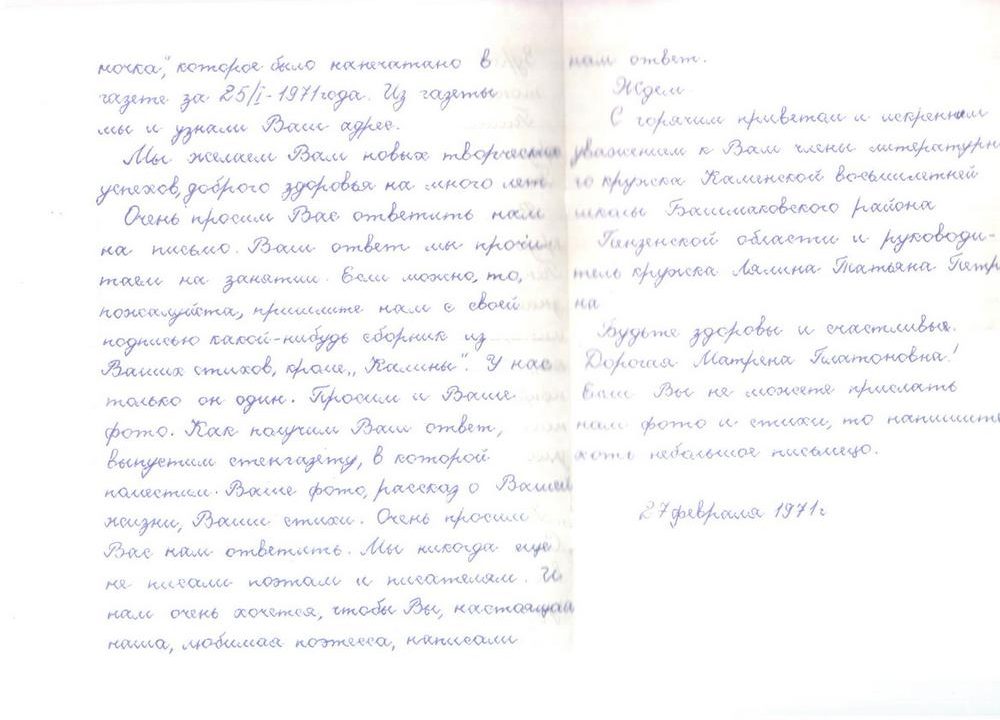 мочка", которое было напечатано в
газете за 25/I-1971 года. Из газеты
мы и узнали Ваш адрес.
Мы желаем Вам новых творческих
успехов, доброго здоровья на много лет.
Очень просим Вас ответить нам
на письмо. Ваш ответ мы прочи
таем на занятии. Если можно, то,
пожалуйста, пришлите нам с своей
подписью какой-нибудь сборник из
Ваших стихов, кроме „Калины". У нас
только он один. Просим и Ваше
фото. Как получим Ваш ответ,
выпустим стенгазету, в которой
поместим Ваше фото, рассказ о Вашей
жизни, Ваши стихи. Очень просим
Вас нам ответить. Мы никогда еще
не писали поэтам и писателям. И
нам очень хочется, чтобы Вы, настоящая
наша, любимая поэтесса, написали
нам ответ.
Ждем
С горячим приветом и искренним
уважением к Вам члены литературн
го кружка Каменской восьмилетней
школы Башмаковского района
Пензенской области и руководи-
тель кружка Лялина Татьяна Петр
на
Будьте здоровы и счастливы.
Дорогая Матрена Платоновна!
Если Вы не можете прислать
нам фото и стихи, то напишите
хоть небольшое письмецо.
27 февраля 1971 г.